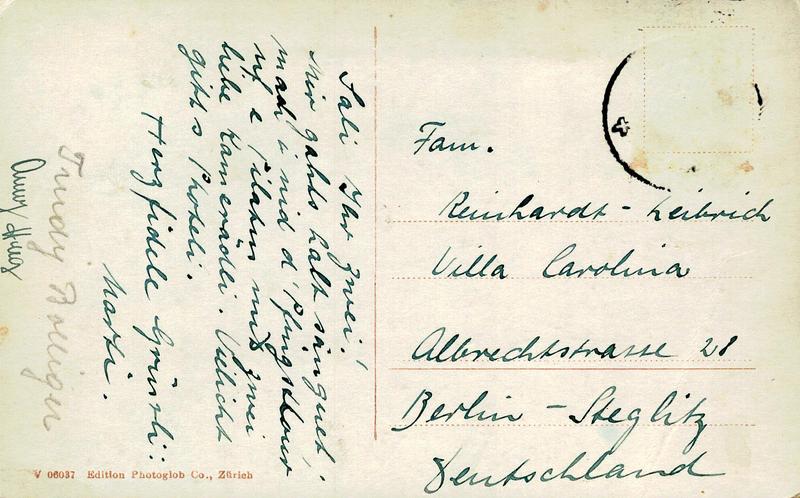 Sali Ihr zwei!
Mir gahts halt sänguet,
mach i mid d'Pfingschttour
uf e Pilatus mit zwei
liebe Kamerädli. Vilicht
gitt's Phöteli.
Herzfideli Grüessli:
Marti.
Trudy Bolliger
Anny
Fam.
Reinhardt - Leibrich
Villa Carolina
Albrechtstrasse 28
Berlin - Steglitz
Deutschland
V 06037 Edition Photoglob Co., Zürich